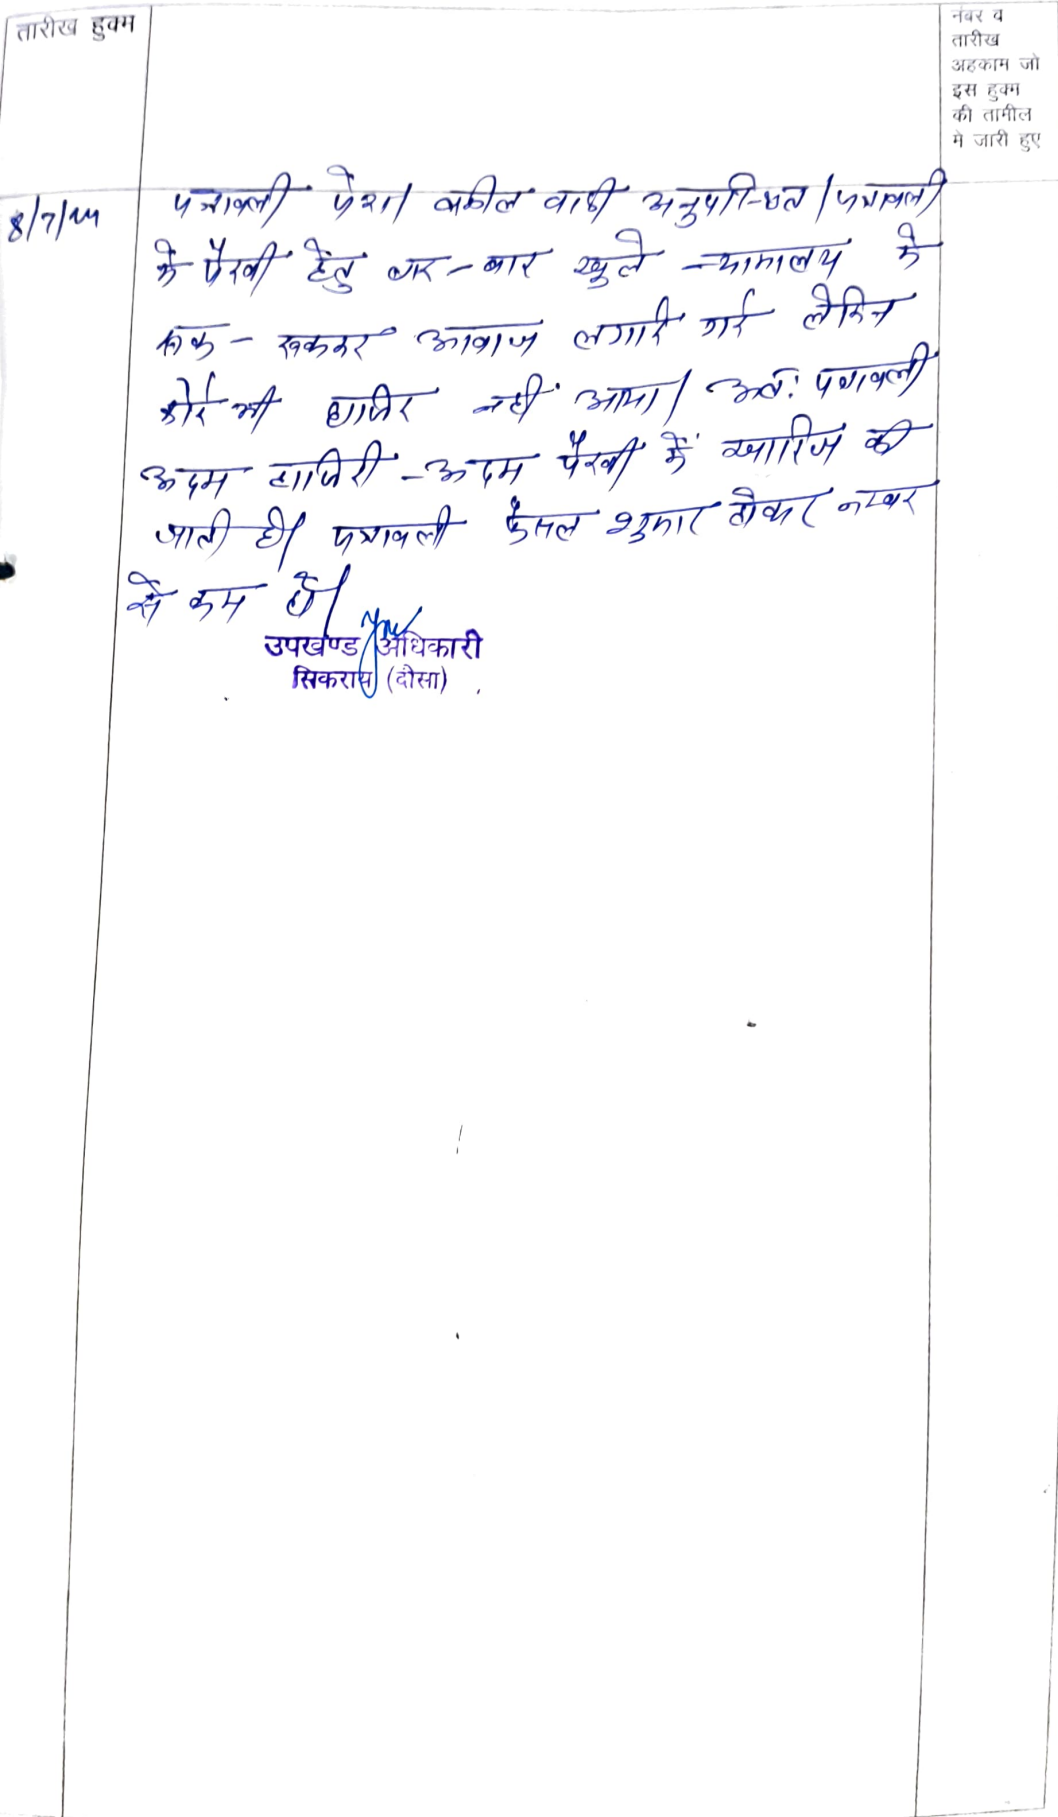 तारीख हुक्म
नंबर व
तारीख
अहकाम जो
इस हुक्म
की तामील
मे जारी हुए
8/7/24
पत्रावली पेश। वकील वादी अनुपस्थित। पत्रावली
मे पैरवी हेतु बार-बार खुले न्यायालय मे
रूक-रूककर आवाज लगाई गई लेकिन
कोई भी हाजिर नहीं आया। अतः पत्रावली
अदम हाजिरी-अदम पैरवी में खारिज की
जाती है। पत्रावली फैसल शुमार होकर नम्बर
से कम हो।
उपखण्ड अधिकारी
सिकराय (दौसा)